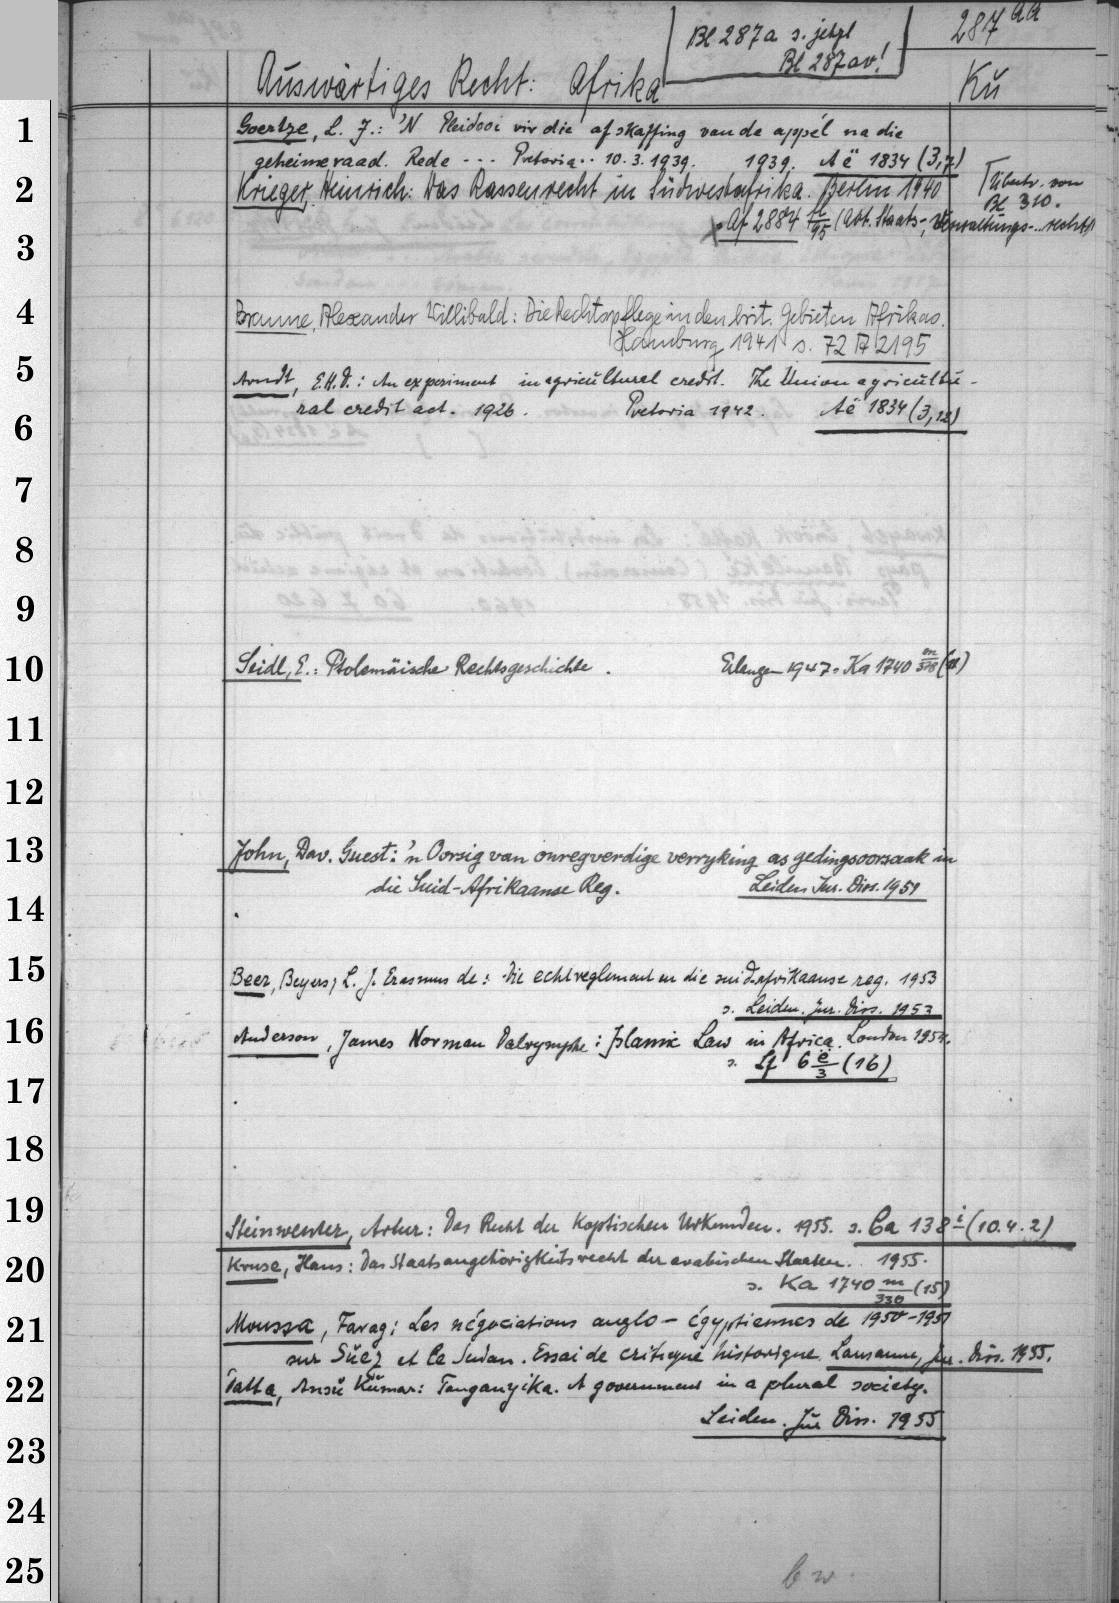 Bl 287a s. jetzt
Bl 287av!
287 aa
Auswärtiges Recht: Afrika
Kü
1
Goertze, L. J.: 'N Pleidooi vir die afskaffing van de appél na die
geheimeraad. Rede --- Pretoria.. 10.3.1939. 1939. Aë 1834 (3,7)
2
Krieger, Heinrich: Das Rassenrecht in Südwestafrika. Berlin 1940
[Übertr. von
Bl 310.
Af 2884 (Abt. Staats-, Verwaltungs-..recht)
3
4
Braune, Alexander Willibald: Die Rechtspflege in den brit. Gebieten Afrikas.
Hamburg 1941 s. 72 A 2195
5
Arndt, E.H.D.: An experiment in agricultural credit. The Union agricultu-
ral credit act. 1926. Pretoria 1942. Aë 1834 (3,12)
6
7
8
9
10
Seidl, E.: Ptolemäische Rechtsgeschichte. Erlangen 1947. Ka 1740 m
11
12
13
John, Dav. Guest: 'n Oorsig van onregverdige verryking as gedingsoorsaak in
die Suid-Afrikaanse Reg. Leiden Jur. Diss. 1951
14
15
Beer, Beyers, L. J. Erasmus de: Die echtreglement en die suidafrikaanse reg. 1953
s. Leiden. Jur. Diss. 1953
16
Anderson, James Norman Dalrymphe: Islamic Law in Africa. London 1954.
s. Lf 6 e/3 (16)
17
18
19
Steinwenter, Artur: Das Recht der Koptischen Urkunden. 1955. s. Ca 138 i (10.4.2)
20
Kruse, Hans: Das Staatsangehörigkeitsrecht der arabischen Staaten. 1955.
s. Ka 1740 m/330 (15)
21
Moussa, Farag: Les négociations anglo-égyptiennes de 1950-1951
sur Suez et le Sudan. Essai de critique historique. Lausanne, Jur. Diss. 1955.
22
Datta, Ansu Kumar: Tanganyika. A government in a plural society.
Leiden. Jur Diss. 1955
23
24
25
b w.